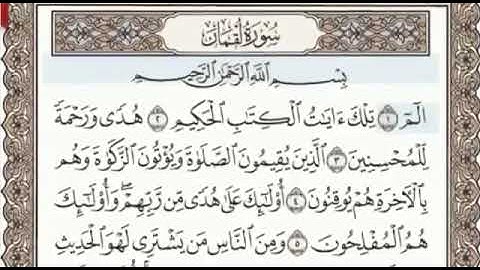 سُورَةُ لُقۡمَانَ
بِسۡمِ ٱللَّهِ ٱلرَّحۡمَٰنِ ٱلرَّحِيمِ
الٓمٓ ١ تِلۡكَ ءَايَٰتُ ٱلۡكِتَٰبِ ٱلۡحَكِيمِ ٢ هُدٗى وَرَحۡمَةٗ
لِّلۡمُحۡسِنِينَ ٣ ٱلَّذِينَ يُقِيمُونَ ٱلصَّلَوٰةَ وَيُؤۡتُونَ ٱلزَّكَوٰةَ وَهُم
بِٱلۡأٓخِرَةِ هُمۡ يُوقِنُونَ ٤ أُوْلَٰٓئِكَ عَلَىٰ هُدٗى مِّن رَّبِّهِمۡۖ وَأُوْلَٰٓئِكَ
هُمُ ٱلۡمُفۡلِحُونَ ٥ وَمِنَ ٱلنَّاسِ مَن يَشۡتَرِي لَهۡوَ ٱلۡحَدِيثِ